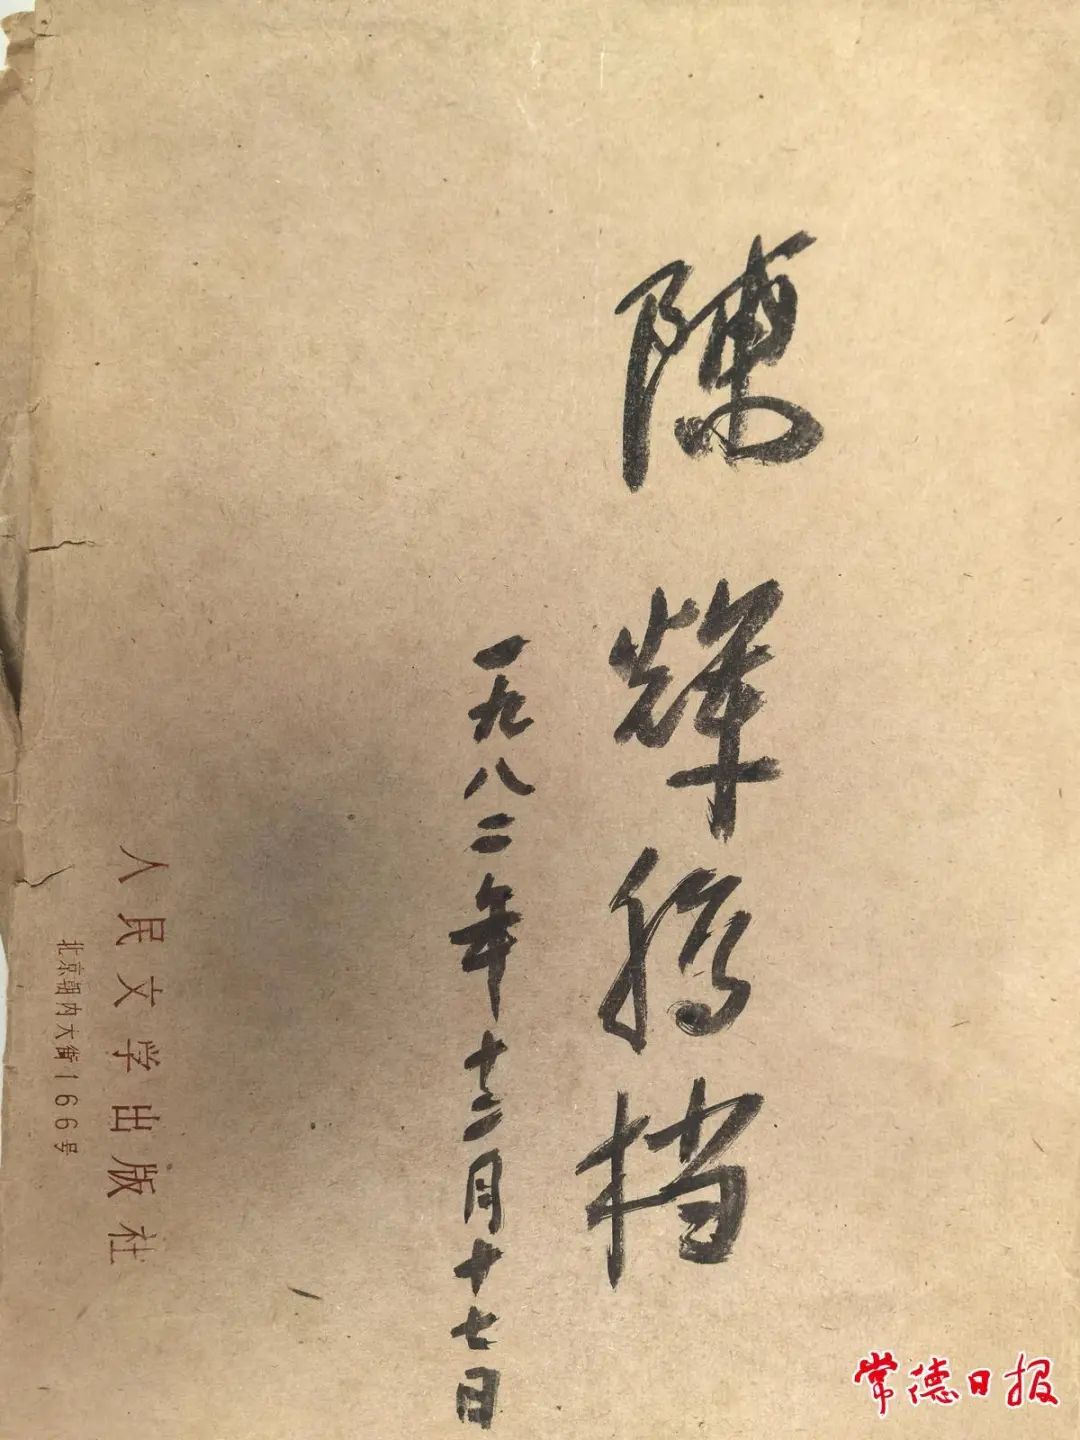 陳辉档
一九八二年十二月十七日
人民文学出版社
北京朝内大街166号
常德日报